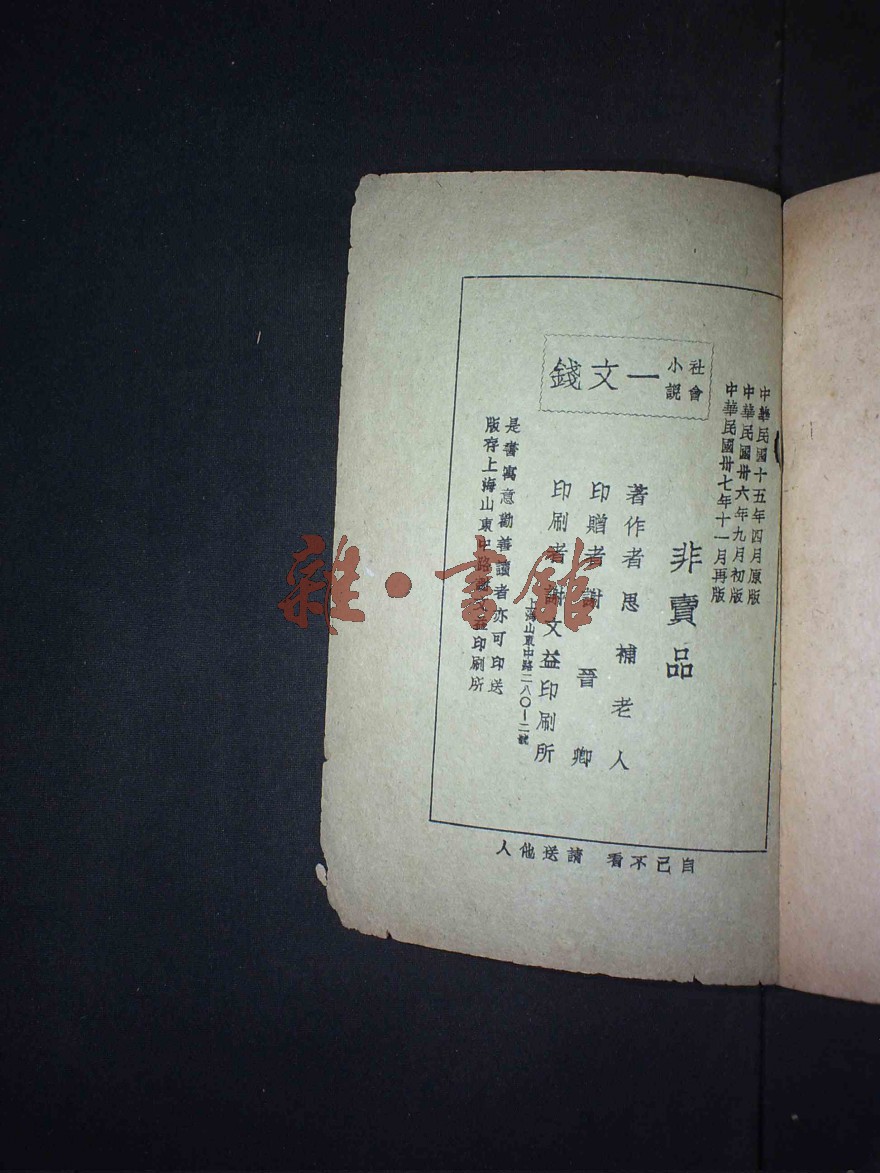 中華民國十五年四月原版
中華民國卅六年九月初版
中華民國卅七年十一月再版
非賣品
社會小說
一文錢
著作者思補老人
印贈者謝晉卿
印刷者謝文益印刷所
上海山東中路二八〇一二號
是書寓意勸善讀者亦可印送
版存上海山東中路謝文益印刷所
自己不看 請送他人
雜·書館